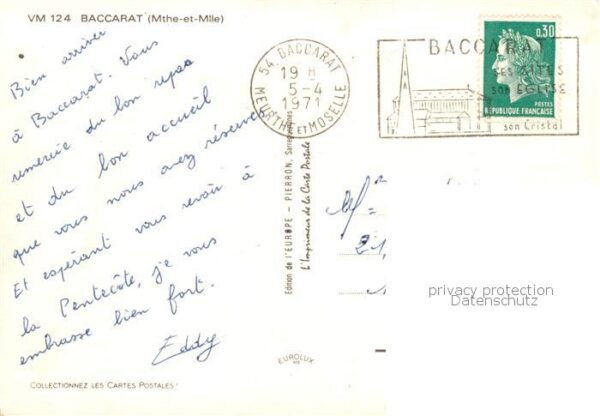 VM 124 BACCARAT (Mthe-et-Mlle)
Bien arriver
à Baccarat. Vous
remercie du bon repas
et du bon accueil
que vous nous avez réservé
Et espérant vous revoir à
la Pentecôte, je vous
embrasse bien fort.
Eddy
COLLECTIONNEZ LES CARTES POSTALES
Edition de l'EUROPE - PIERRON, Sarreguemines
L'Imprimeur de la Carte Postale
EUROLUX
54 BACCARAT
19 H
5-4
1971
MEURTHE ET MOSELLE
BACCARAT
SES SITES
son EGLISE
son Cristal
0,30
POSTES
REPUBLIQUE FRANÇAISE
M
21,
privacy protection
Datenschutz